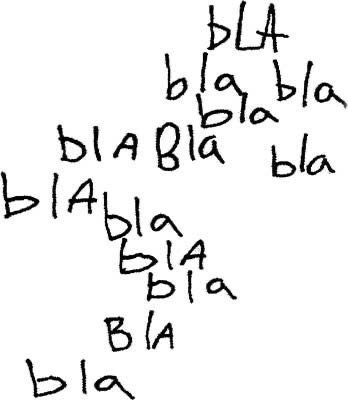 bLA
bla bla
bla
blA Bla bla
blA
bla
blA
bla
BlA
bla